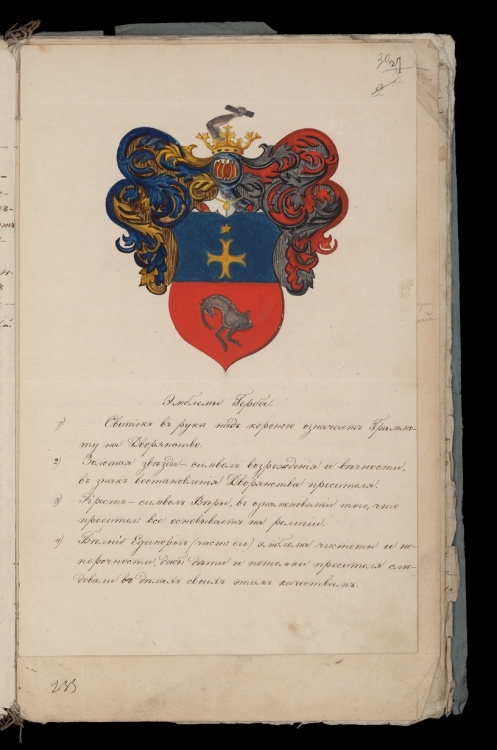 30 27
Эмблемы Герба.
1) Свитокъ въ руки надъ короною означаетъ Грамма-
ту на Дворянство.
2) Золотая звѣзда – символъ возрожденія и вѣчности,
въ знакъ востановленія Дворянства просителя.
3) Крестъ – символъ Вѣры, въ ознаменованіи того, что
проситель все основываетъ на религіи.
4) Бѣлый Единорогъ (часть его) эмблема чистоты и не-
порочности, дабы дѣти и потомки просителя слѣ-
довали въ дѣлахъ своихъ этимъ качествамъ.
233